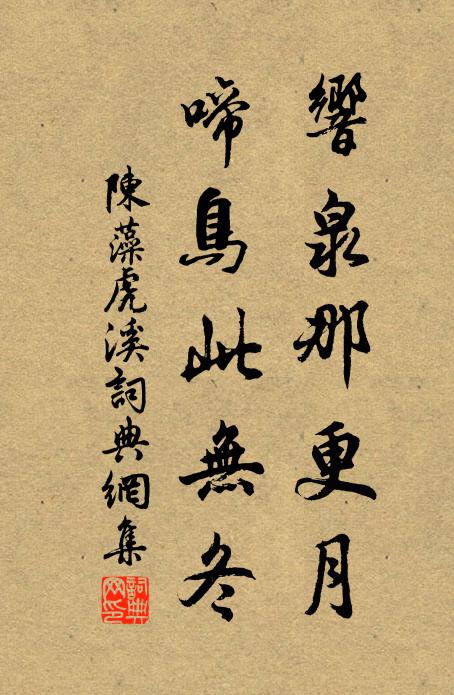 響泉那更月
啼鳥此無冬
陳藻虎溪詞典網集
詞典网印